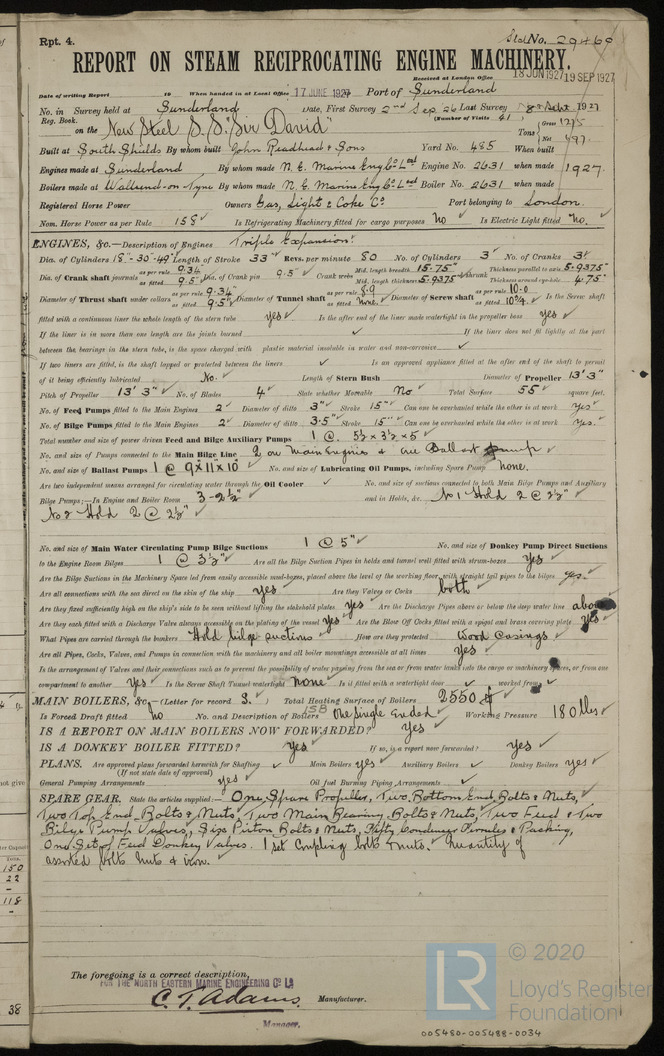 Rpt. 4.
Sld No. 29469
REPORT ON STEAM RECIPROCATING ENGINE MACHINERY.
Received at London Office 18 JUN 1927 19 SEP 1927
Date of writing Report 19 When handed in at Local Office 17 JUNE 1927 Port of Sunderland
No. in Survey held at Sunderland Date, First Survey 2nd Sep 26 Last Survey 8th Sept 1927
Reg. Book. (Number of Visits 41)
on the New Steel S.S. "Sir David" Tons Gross 1275 Net 697
Built at South Shields By whom built John Readhead & Sons Yard No. 485 When built
Engines made at Sunderland By whom made N. E. Marine Eng Co Ltd Engine No. 2631 when made 1927.
Boilers made at Wallsend-on-Tyne By whom made N. E. Marine Eng Co Ltd Boiler No. 2631 when made
Registered Horse Power Owners Gas, Light & Coke Co Port belonging to London.
Nom. Horse Power as per Rule 158 Is Refrigerating Machinery fitted for cargo purposes No Is Electric Light fitted No.
ENGINES, &c.—Description of Engines Triple Expansion.
Dia. of Cylinders 18"-30"-49" Length of Stroke 33" Revs. per minute 80 No. of Cylinders 3 No. of Cranks 3
Dia. of Crank shaft journals as per rule 9.34 as fitted 9.5" Dia. of Crank pin 9.5" Crank webs Mid. length breadth 15.75" Mid. length thickness 5.9375" shrunk Thickness parallel to axis 5.9375" Thickness around eye-hole 4.75"
Diameter of Thrust shaft under collars as per rule 9.34 as fitted 9.5" Diameter of Tunnel shaft as per rule 8.9 as fitted None. Diameter of Screw shaft as per rule 10.0 as fitted 10¾ Is the Screw shaft
fitted with a continuous liner the whole length of the stern tube yes Is the after end of the liner made watertight in the propeller boss yes
If the liner is in more than one length are the joints burned If the liner does not fit tightly at the part
between the bearings in the stern tube, is the space charged with plastic material insoluble in water and non-corrosive
If two liners are fitted, is the shaft lapped or protected between the liners Is an approved appliance fitted at the after end of the shaft to permit
of it being efficiently lubricated No. Length of Stern Bush Diameter of Propeller 13'3"
Pitch of Propeller 13'3" No. of Blades 4 State whether Moveable No Total Surface 55 square feet.
No. of Feed Pumps fitted to the Main Engines 2 Diameter of ditto 3" Stroke 15" Can one be overhauled while the other is at work yes
No. of Bilge Pumps fitted to the Main Engines 2 Diameter of ditto 3.5" Stroke 15" Can one be overhauled while the other is at work yes.
Total number and size of power driven Feed and Bilge Auxiliary Pumps 1 @ 5½ x 3½ x 5
No. and size of Pumps connected to the Main Bilge Line 2 on Main Engines & one Ballast pump
No. and size of Ballast Pumps 1 @ 9"x11"x10" No. and size of Lubricating Oil Pumps, including Spare Pump None.
Are two independent means arranged for circulating water through the Oil Cooler No. and size of suctions connected to both Main Bilge Pumps and Auxiliary
Bilge Pumps;—In Engine and Boiler Room 3-2½" and in Holds, &c. No 1 Hold 2 @ 2½"
No 2 Hold 2 @ 2½"
No. and size of Main Water Circulating Pump Bilge Suctions 1 @ 5" No. and size of Donkey Pump Direct Suctions
to the Engine Room Bilges 1 @ 3½" Are all the Bilge Suction Pipes in holds and tunnel well fitted with strum-boxes yes
Are the Bilge Suctions in the Machinery Space led from easily accessible mud-boxes, placed above the level of the working floor, with straight tail pipes to the bilges yes.
Are all connections with the sea direct on the skin of the ship yes Are they Valves or Cocks both
Are they fixed sufficiently high on the ship's side to be seen without lifting the stokehold plates yes Are the Discharge Pipes above or below the deep water line above
Are they each fitted with a Discharge Valve always accessible on the plating of the vessel yes Are the Blow Off Cocks fitted with a spigot and brass covering plate yes
What Pipes are carried through the bunkers Hold bilge suctions How are they protected Wood Casings
Are all Pipes, Cocks, Valves, and Pumps in connection with the machinery and all boiler mountings accessible at all times yes
Is the arrangement of Valves and their connections such as to prevent the possibility of water passing from the sea or from water tanks into the cargo or machinery spaces, or from one
compartment to another yes Is the Screw Shaft Tunnel watertight none Is it fitted with a watertight door worked from
MAIN BOILERS, &c.—(Letter for record S.) Total Heating Surface of Boilers 2550
Is Forced Draft fitted No No. and Description of Boilers One Single Ended 1SB Working Pressure 180 lbs.
IS A REPORT ON MAIN BOILERS NOW FORWARDED? yes
IS A DONKEY BOILER FITTED? yes If so, is a report now forwarded? yes
PLANS. Are approved plans forwarded herewith for Shafting Main Boilers yes Auxiliary Boilers Donkey Boilers yes
(If not state date of approval)
General Pumping Arrangements yes Oil fuel Burning Piping Arrangements
SPARE GEAR. State the articles supplied:— One Spare Propeller, Two Bottom End Bolts & Nuts,
Two Top End Bolts & Nuts, Two Main Bearing Bolts & Nuts, Two Feed & Two
Bilge Pump Valves, Six Piston Bolts & Nuts, Fifty Condenser Ferrules & Packing,
One Set of Feed Donkey Valves. 1 set coupling bolts & nuts. Quantity of
assorted bolts nuts & iron.
The foregoing is a correct description,
FOR THE NORTH EASTERN MARINE ENGINEERING Co Ld
C. T. Adams. Manufacturer.
Manager.
not give
Tons.
150
22
-
118
-
38
© 2020
LR Lloyd's Register
Foundation
005480-005488-0034